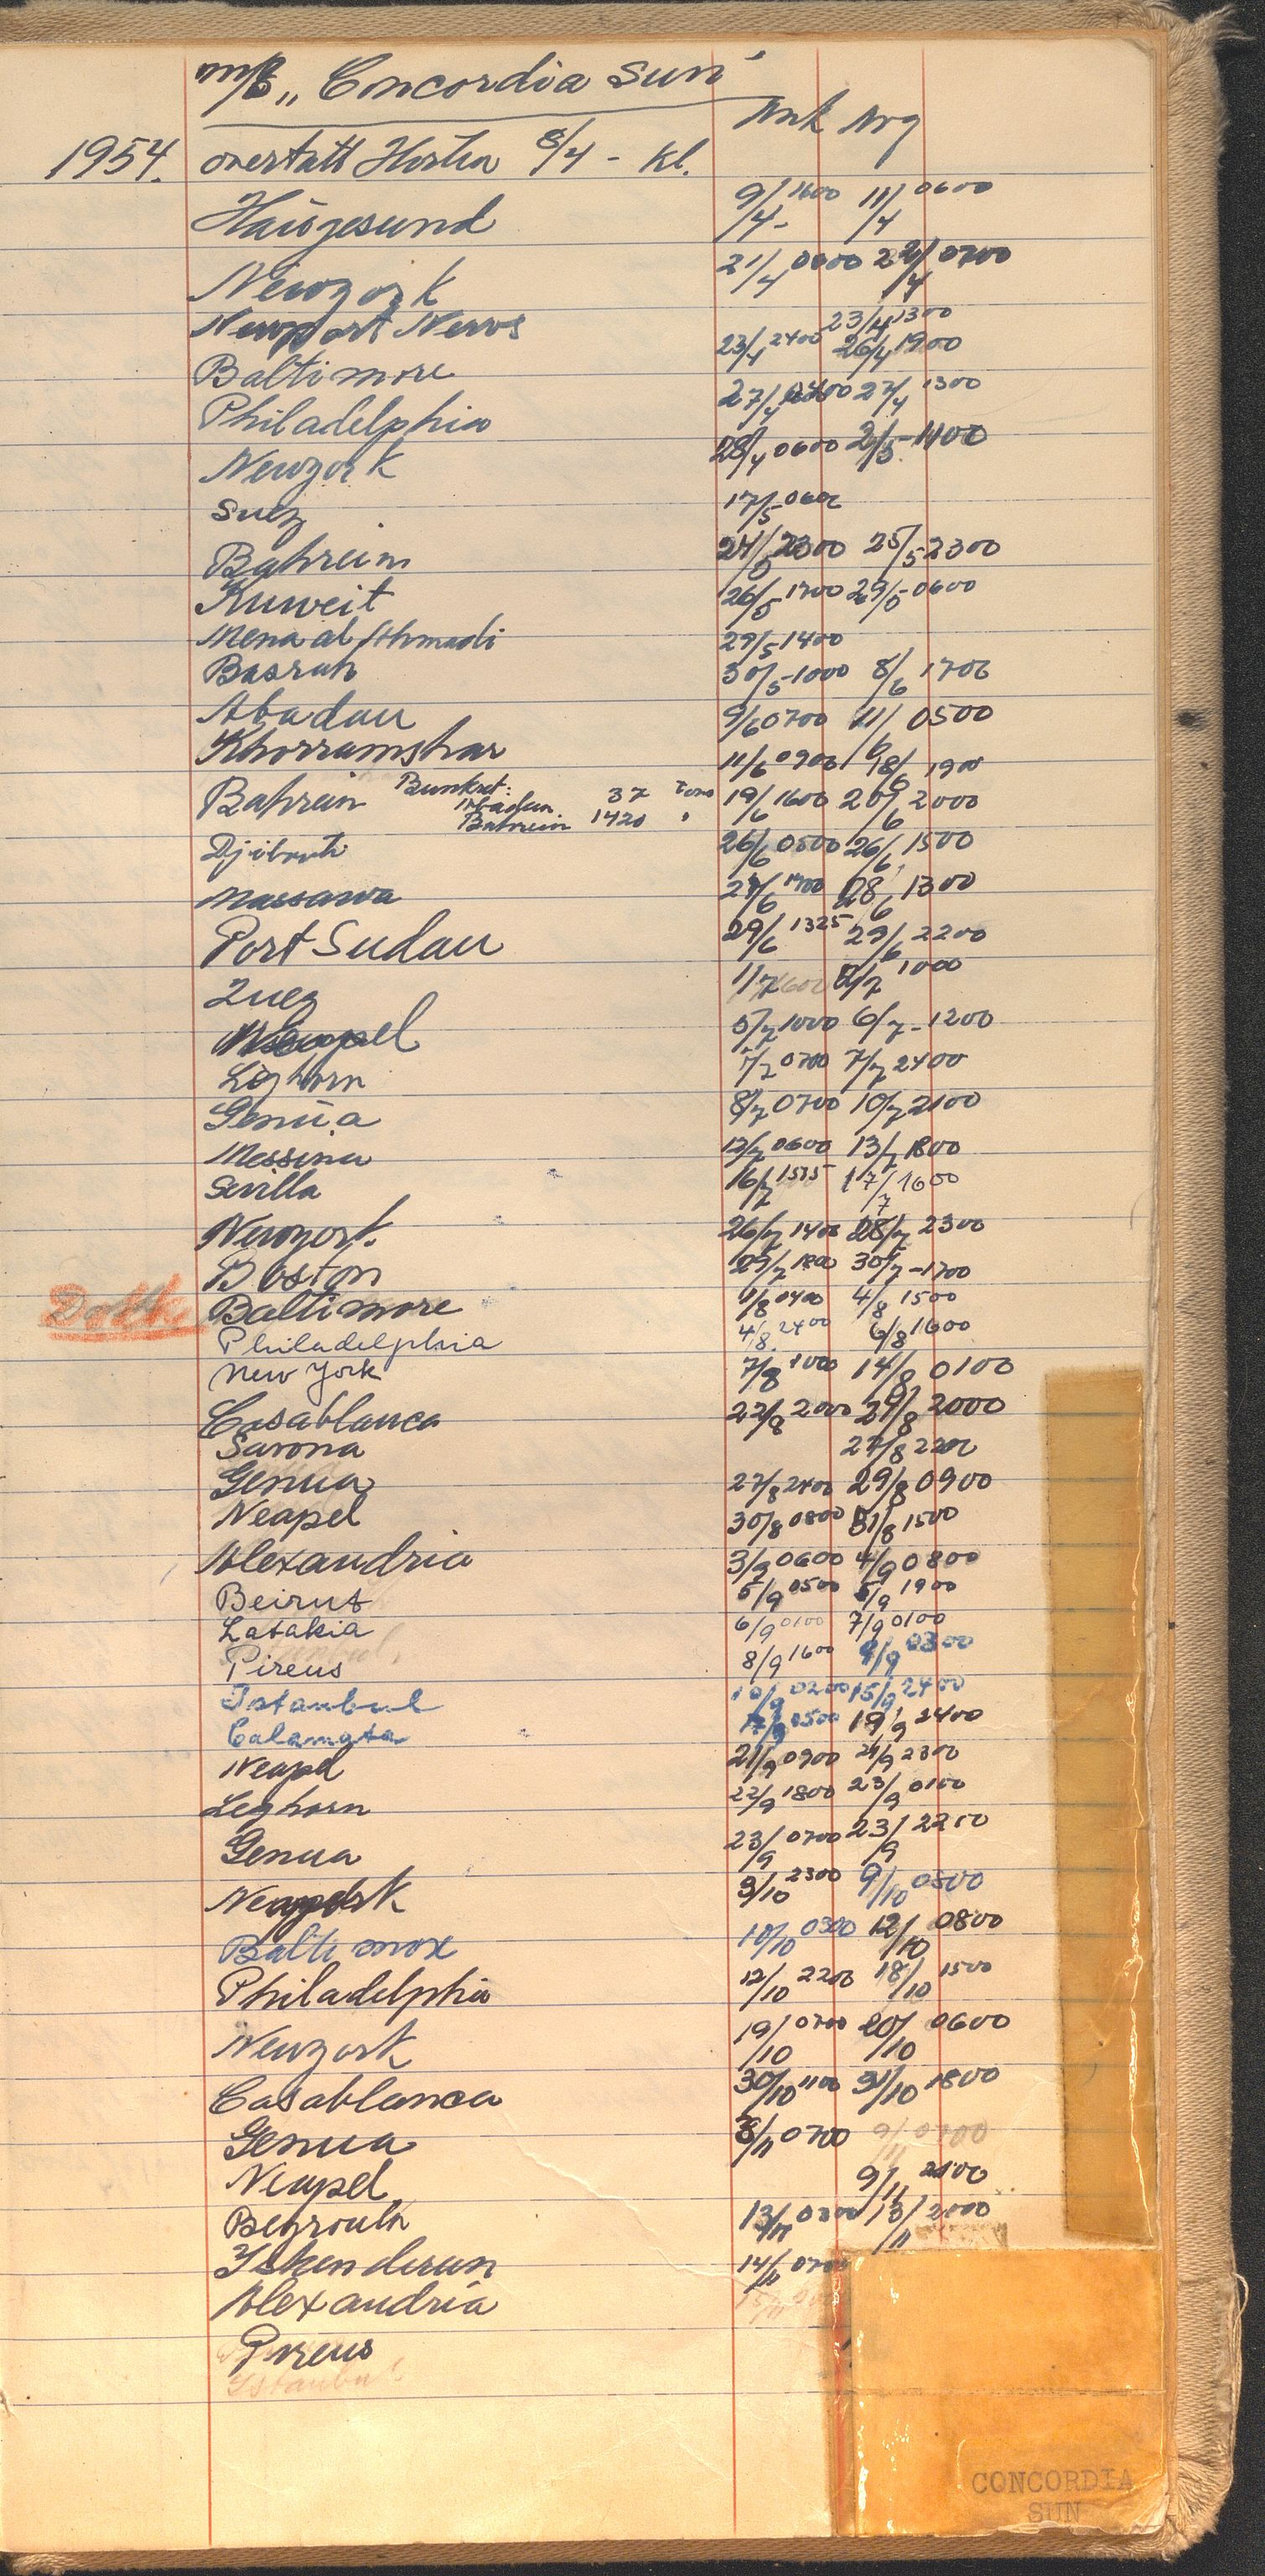 m/s „Concordia Sun"
Ank Avg
1954. overtatt Horten 8/4 - kl.
Haugesund 9/4- 1600 11/4 0600
Newyork 21/4 0600 22/4 0700
Newport News 23/4 1300
Baltimore 23/4 2400 26/4 1900
Philadelphia 27/4 27/4 1300
Newyork 28/4 0600 2/5-1400
Suez 17/5 0600
Bahrein 24/5 2300 25/5 2300
Kuweit 26/5 1700 29/5-0600
Mena al Ahmadi 29/5 1400
Basrah 30/5-1000 8/6 1700
Abadan 9/6 0700 11/6 0500
Khorramshar 11/6 0900 18/6 1900
Bahrein Bunkret: 19/6 1600 20/6 2000
Abadan 37 tons
Bahrein 1420 "
Djibouti 26/6 0500 26/6 1500
Massawa 27/6 1700 28/6 1300
Port Sudan 29/6 1325 29/6 2200
Zuez 1/7 1600 2/7 1000
Neapel 5/7 1000 6/7-1200
Leghorn 7/7 0700 7/7 2400
Genua 8/7 0700 10/7 2100
Messina 12/7 0600 13/7 1800
Sevilla 16/7 1515 17/7 1600
Newyork. 26/7 1400 28/7 2300
Boston 29/7 1800 30/7-1700
Dokk Baltimore 1/8 0400 4/8 1500
Philadelphia 4/8. 2400 6/8 1600
New York 7/8 1000 14/8 0100
Casablanca 22/8 2000 24/8 2000
Savona 27/8 2200
Genua 27/8 2400 29/8 0900
Neapel 30/8 0800 31/8 1500
Alexandria 3/9 0600 4/9 0800
Beirut 5/9 0500 5/9 1900
Latakia 6/9 0100 7/9 0100
Pireus 8/9 1600 9/9 0300
Istanbul 10/9 0200 15/9 2400
Calamata 17/9 0500 19/9 2400
Neapel 21/9 0900 21/9 2300
Leghorn 22/9 1800 23/9 0100
Genua 23/9 0700 23/9 2200
Newyork 3/10 2300 9/10 0500
Baltimore 10/10 0300 12/10 0800
Philadelphia 12/10 2200 18/10 1500
Newyork 19/10 0700 20/10 0600
Casablanca 30/10 1100 31/10 1800
Genua 8/11 0700
Neapel 9/11 2100
Beyrouth 13/11 13/11 2000
Iskenderun 14/11 0700
Alexandria
Pireus
Istanbul
CONCORDIA
SUN